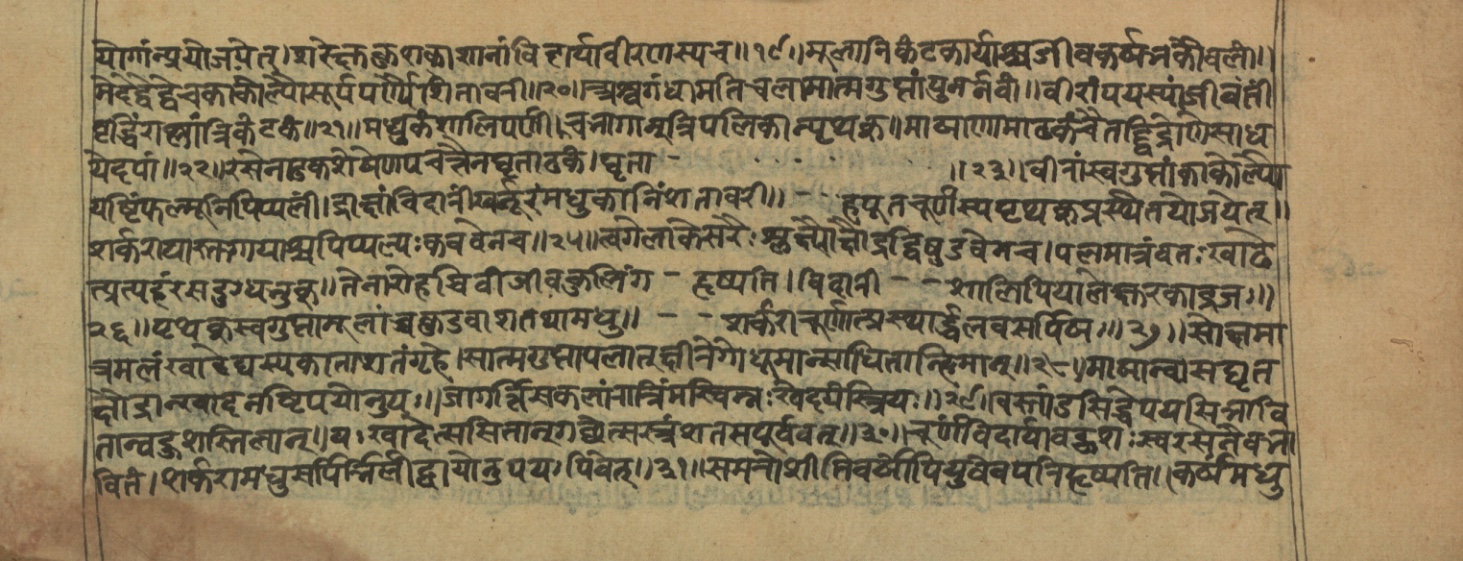 योगांन्प्रयोजयेत्। शरेक्षुकुशकाशानांविदार्यावीरणस्यच॥१९॥मूलानिकंटकार्याश्चजीवकर्षभकौबलां॥
मेदेद्वेद्वेचकाकोल्यौसूर्पपर्ण्यौशतावरी॥२०॥अश्वगंधामतिबलामात्मगुप्तांपुनर्नवां॥वीरांपयस्यांजीवंतीं
ऋद्धिंरास्नांत्रिकंटकं॥२१॥मधुकंशालिपर्णीं।चभागान्त्रिपलिकान्पृथक्॥माषाणामाढकंचैतद्द्विद्रोणेसाध
येदपां॥२२॥रसेनाढकशेषेणपचेत्तेनघृताढकं।घृता - ॥२३॥वीरांस्वगुप्तांकाकोल्यौ
यष्टिंफल्गूनिपिप्पलीं।द्राक्षांविदारींखर्जूरंमधुकानिंशतावरी॥ - हपूतचूर्णस्यपृथक्प्रस्थेतयोजयेत्॥
शर्करायास्तुगायाश्चपिप्पल्यःकुडवेनच॥२५॥त्वगेलाकेसरैःश्लक्ष्णैक्षौद्रद्विकुडवेनच।पलमात्रंततःखादे
त्प्रत्यहंरसदुग्धभुक्॥तेनारोहतिवाजीवकुलिंग - हृष्यति।विदारी - - शालिपियालेक्षुरकाद्रजः॥
२६॥पृथक्स्वगुप्तामूलांच्चकुडवाशतथामधु॥ - - शर्कराचूर्णात्प्रस्थार्द्धंनवसर्पिषः॥२७॥सोक्षमा
त्रमलंखादेद्यस्यकांताशतंगृहे।सात्मगुप्ताफलान्क्षीरेगोधूमान्साधितान्हिमान्॥२८॥माषान्वासघृत
क्षौद्रान्खादन्गृष्टिपयोनुयः॥जागर्त्तिसकलांरात्रिंमखिन्नःखेदयंस्त्रियः॥२९॥बस्तांडसिद्धेपयसिभावि
तान्बहुशस्तिलान्।यःखादेत्ससितान्गच्छेत्सस्त्रंशतमपूर्ववत्॥३०॥चूर्णंविदार्याबहुशःस्वरसेनैवभा
वितं।शर्करामधुसर्पिर्भिर्लीढ्वायोनुपयःपिबेत्॥३१॥समनोशीतिवर्षोपियुवेवपरिहृष्यति।कर्षंमधु